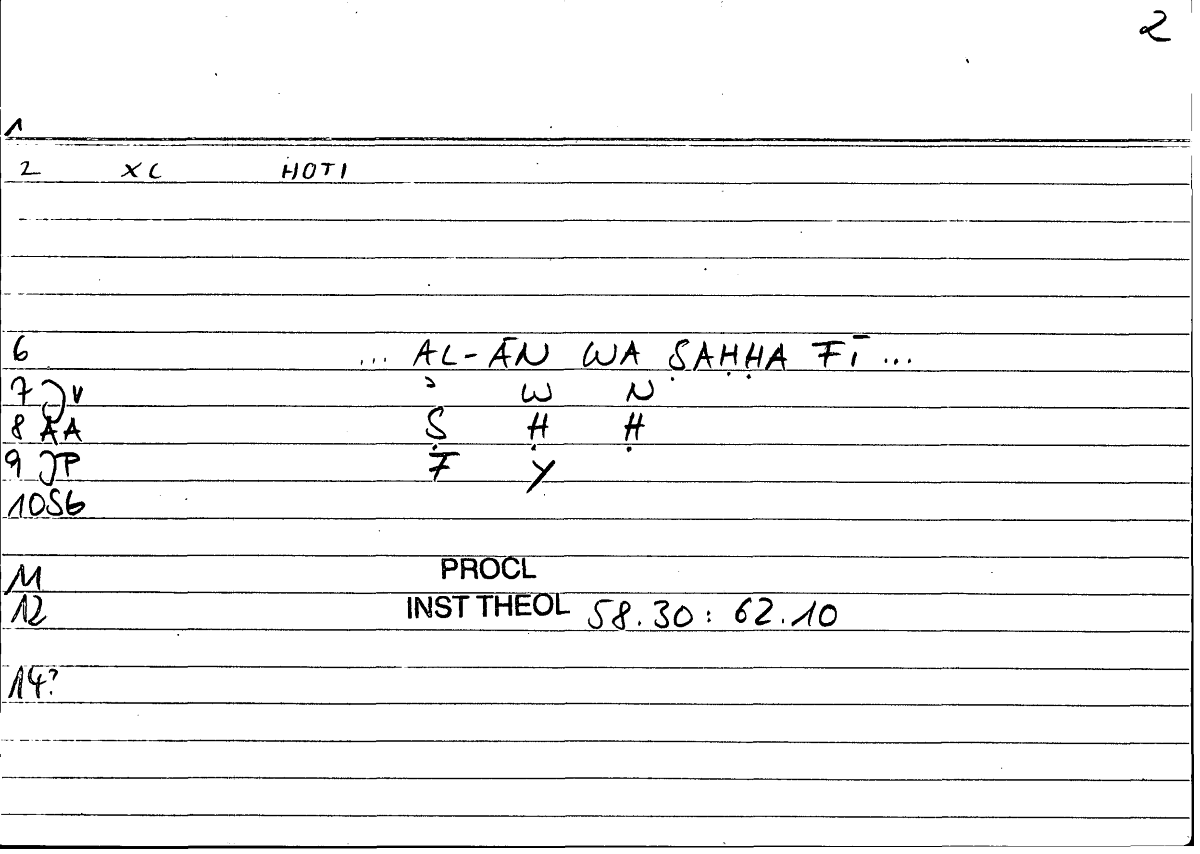 2
1
2 XC HOTI
6 ... AL-ĀN WA ṢAḤḤA FĪ ...
7 JV ʾ W N
8 AA Ṣ Ḥ Ḥ
9 JP F Y
10 SG
11 PROCL
12 INST THEOL 58.30: 62.10
14?